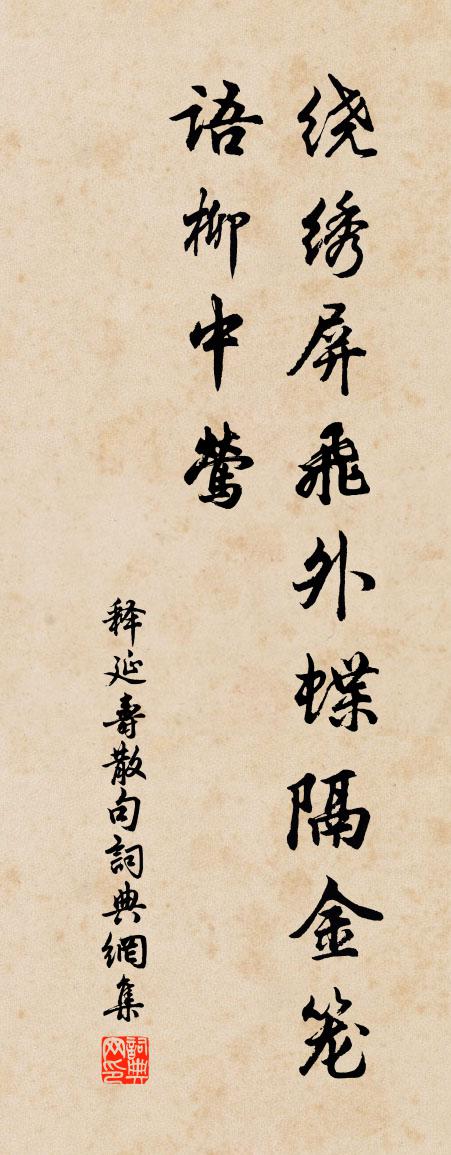 绕绣屏飛外蝶隔金笼
語柳中莺
释延壽散句詞典網集
詞典网印